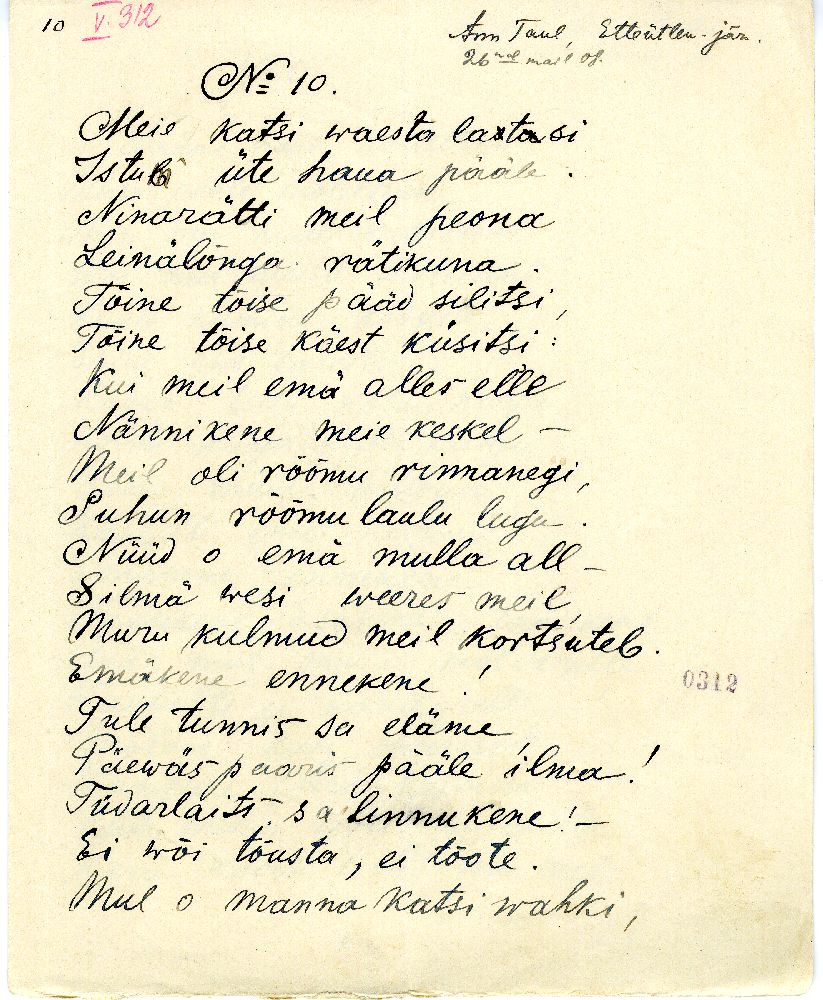 10 V. 312
Ann Taul, Etteütlen. jän.
26nal mail 08.
№ 10.
Meie katsi waesta lastasi
Istub üte haua pääle.
Ninarätti meil peona
Leinälõnga rätikuna.
Tõine tõise pääd silitsi,
Tõine tõise käest küsitsi:
Kui meil emä alles elle
Nännikene meie keskel –
Meil oli rõõmu rinnanegi,
Suhun rõõmu laulu lugu.
Nüüd o emä mulla all –
Silmä wesi weeres meil,
Muru kulmud meil kortsuteb.
Emäkene ennekene!
0312
Tule tunnis sa eläme,
Päewäs paaris pääle ilma!
Tüdarlaits, sa linnukene! –
Ei wõi tõusta, ei tõote.
Mul o manna katsi wahki,